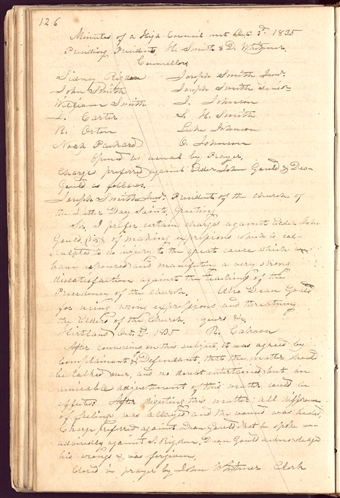 126
Minutes of a High Council met 1835
Presiding Presidents H. Smith & D. Whitmer
Councillors
Sidney Rigdon Joseph Smith Junr.
John Smith Joseph Smith Senior
William Smith L. Johnson
J. Carter S. H. Smith
R. Orton Luke Johnson
Noah Packard O. Johnson
Opened as usual by Prayer
Charge prefered against Elder John Gould & Dean
Gould as follows.
Joseph Smith Junr. President of the church of
the Latter Day Saints, Greeting,
Sir, I prefer certain charges against Elder John
Gould, of making expressions which is cal-
culated to do injury to the great cause which we
have espoused and manifesting a very strong
dissatisfaction against the teachings of the
Presidency of the church. Also Dean Gould
for using strong expressions and threatning
the Elders of the Church. yours &c
Kirtland 1835 R. Carson
After conversing on this subject, it was agreed by
Complainant & Defendant, that the matter should
be talked over, and no doubt entertained but an
amicable adjustment of this matter could be
effected. After digesting this matter, all difference
of feelings was allayed and the wound was healed
Charge prefered against Dean Gould that he spoke un-
advisedly against S. Rigdon. Dean Gould acknowledged
his wrong & was forgiven.
Closed in prayer by John Whitmer Clerk